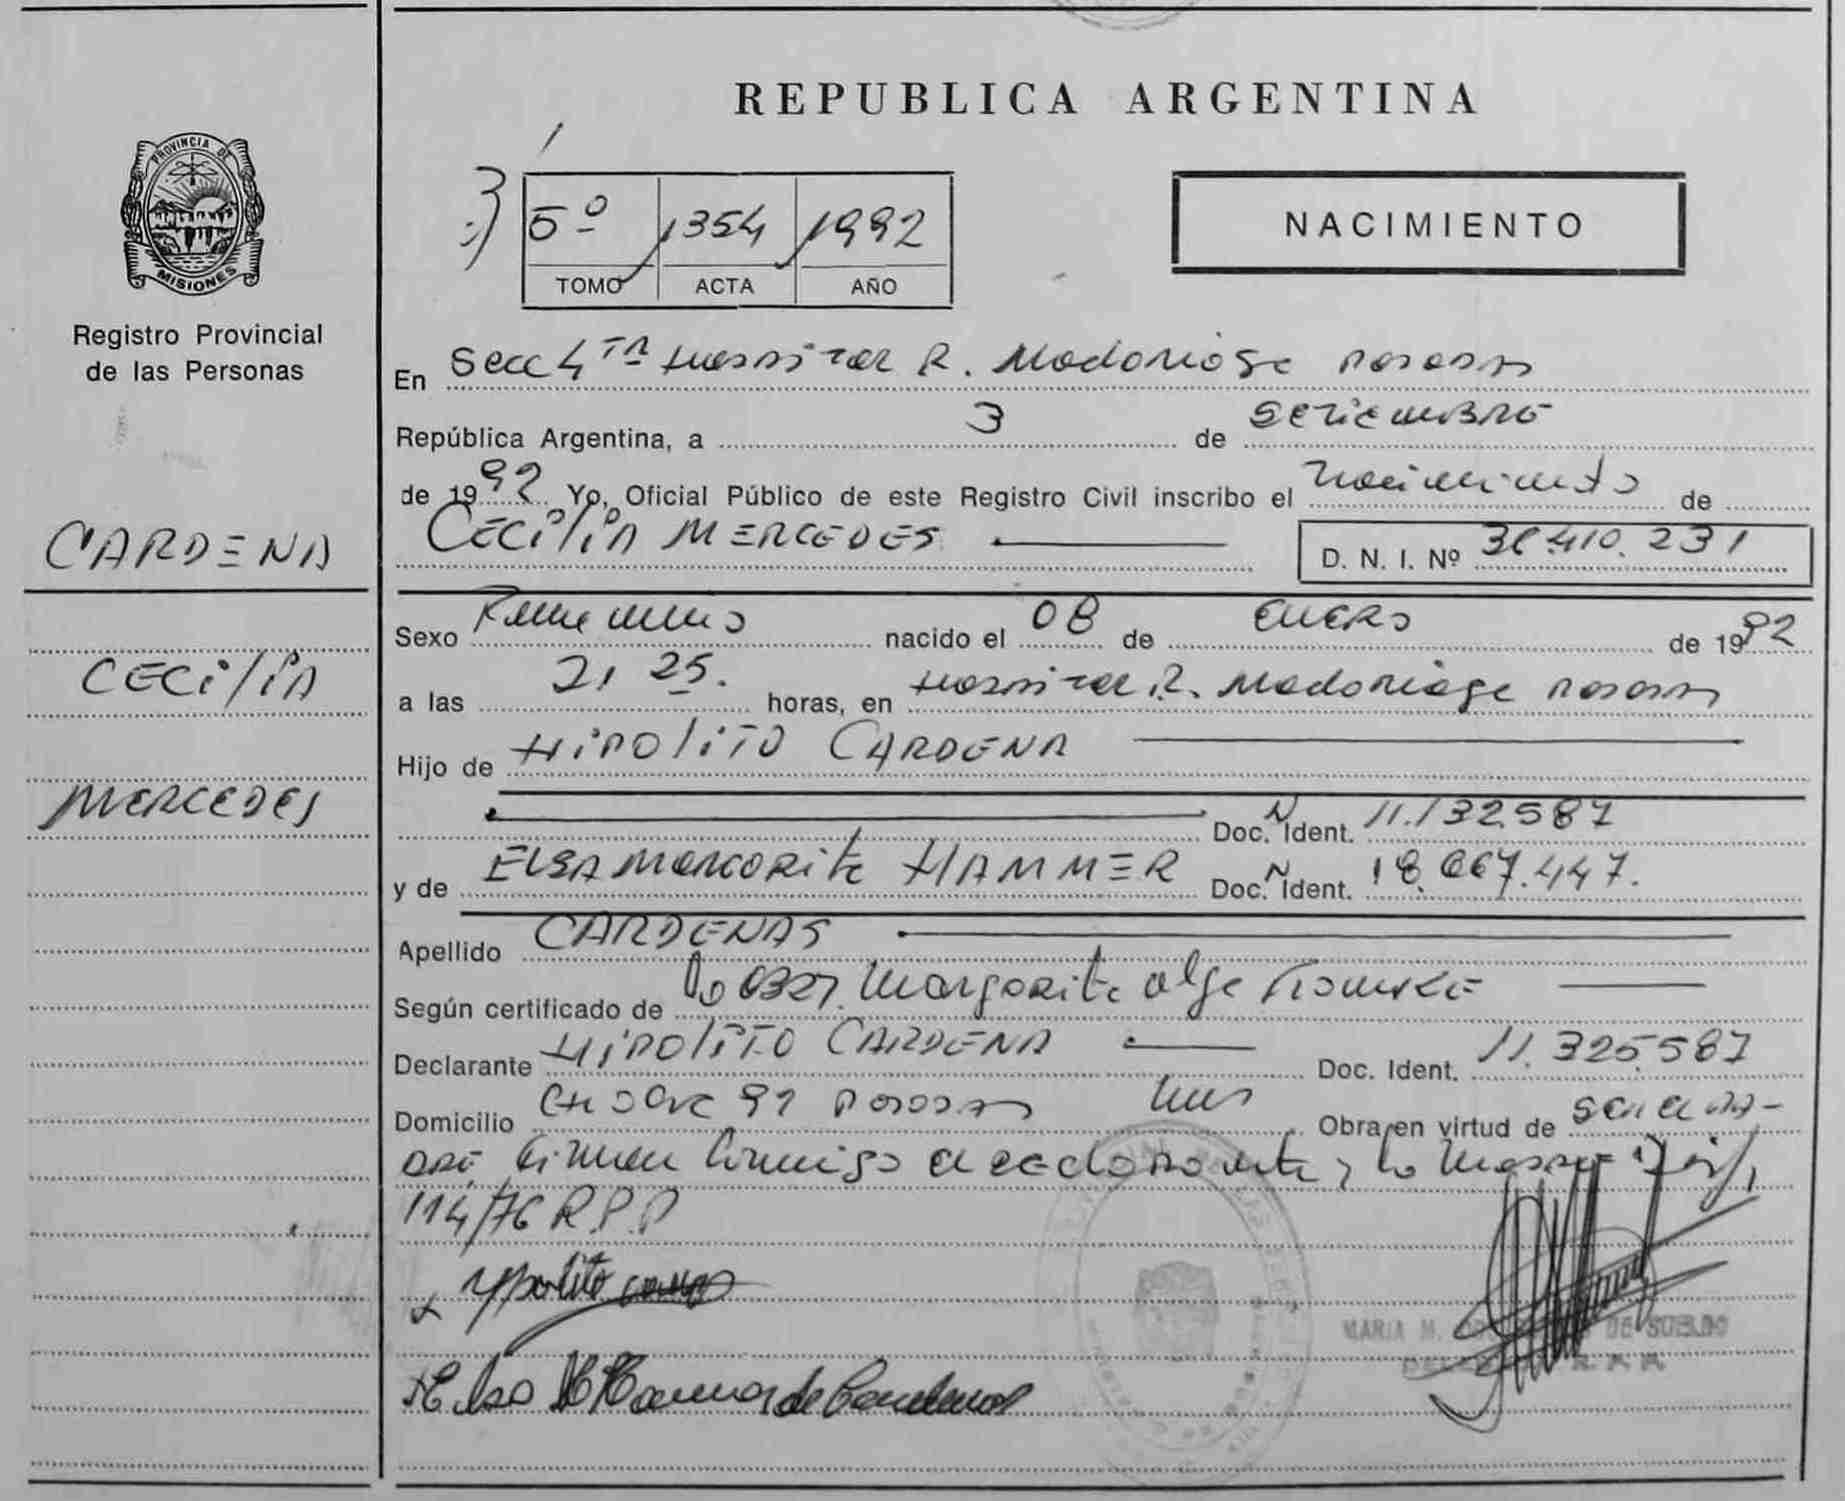 REPUBLICA ARGENTINA
PROVINCIA DE
MISIONES
Registro Provincial
de las Personas
CARDENA
CECiliA
MERCEDES
5º 1354 1992
TOMO ACTA AÑO
NACIMIENTO
En Secc 4ta Hospital R. Madariaga Posadas
República Argentina, a 3 de Setiembre
de 1992 Yo, Oficial Público de este Registro Civil inscribo el nacimiento de
CECiliA MERCEDES
D. N. I. Nº 410.231
Sexo Femenino nacido el 08 de ENERO de 1992
a las 21 25. horas, en Hospital R. Madariaga Posadas
Hijo de HiPOliTO CARDENA
Doc. N Ident. 11.132587
y de ELSA MARGARita HAMMER Doc. N Ident. 18.667.447.
Apellido CARDENAS
Según certificado de Margarita Olga
Declarante HiPOliTO CARDENA Doc. Ident. 11.325.587
Domicilio Posadas Mnes Obra en virtud de
firman conmigo el declarante y la
114/76 R.P.P
MARIA M. DE SUELDO